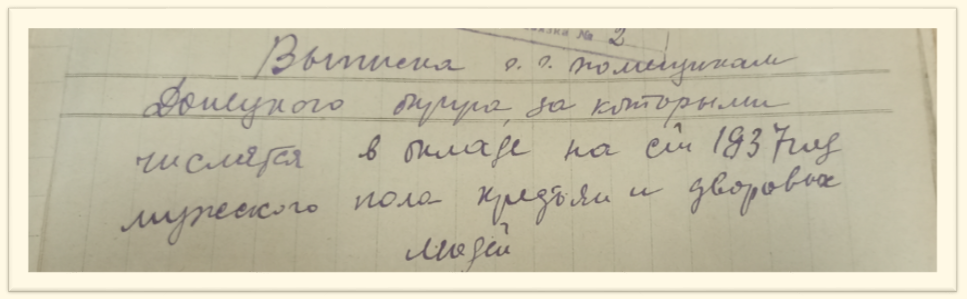 № 2
Выписка г.г. помещикам
Донецкого округа, за которыми
числятся в окладе на сей 1837 год
мужеского пола крестьян и дворовых
людей